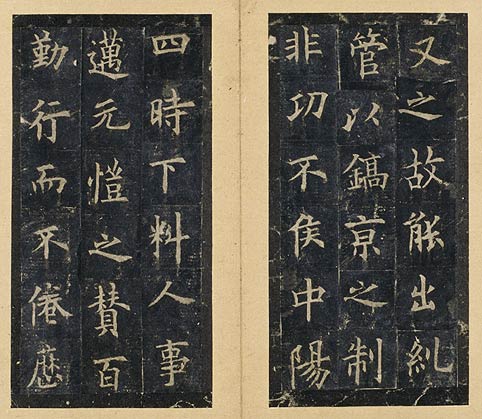 又之故能出糺
管以鎬京之制
非功不侯中陽
四時下料人事
邁元愷之贊百
勤行而不倦歷